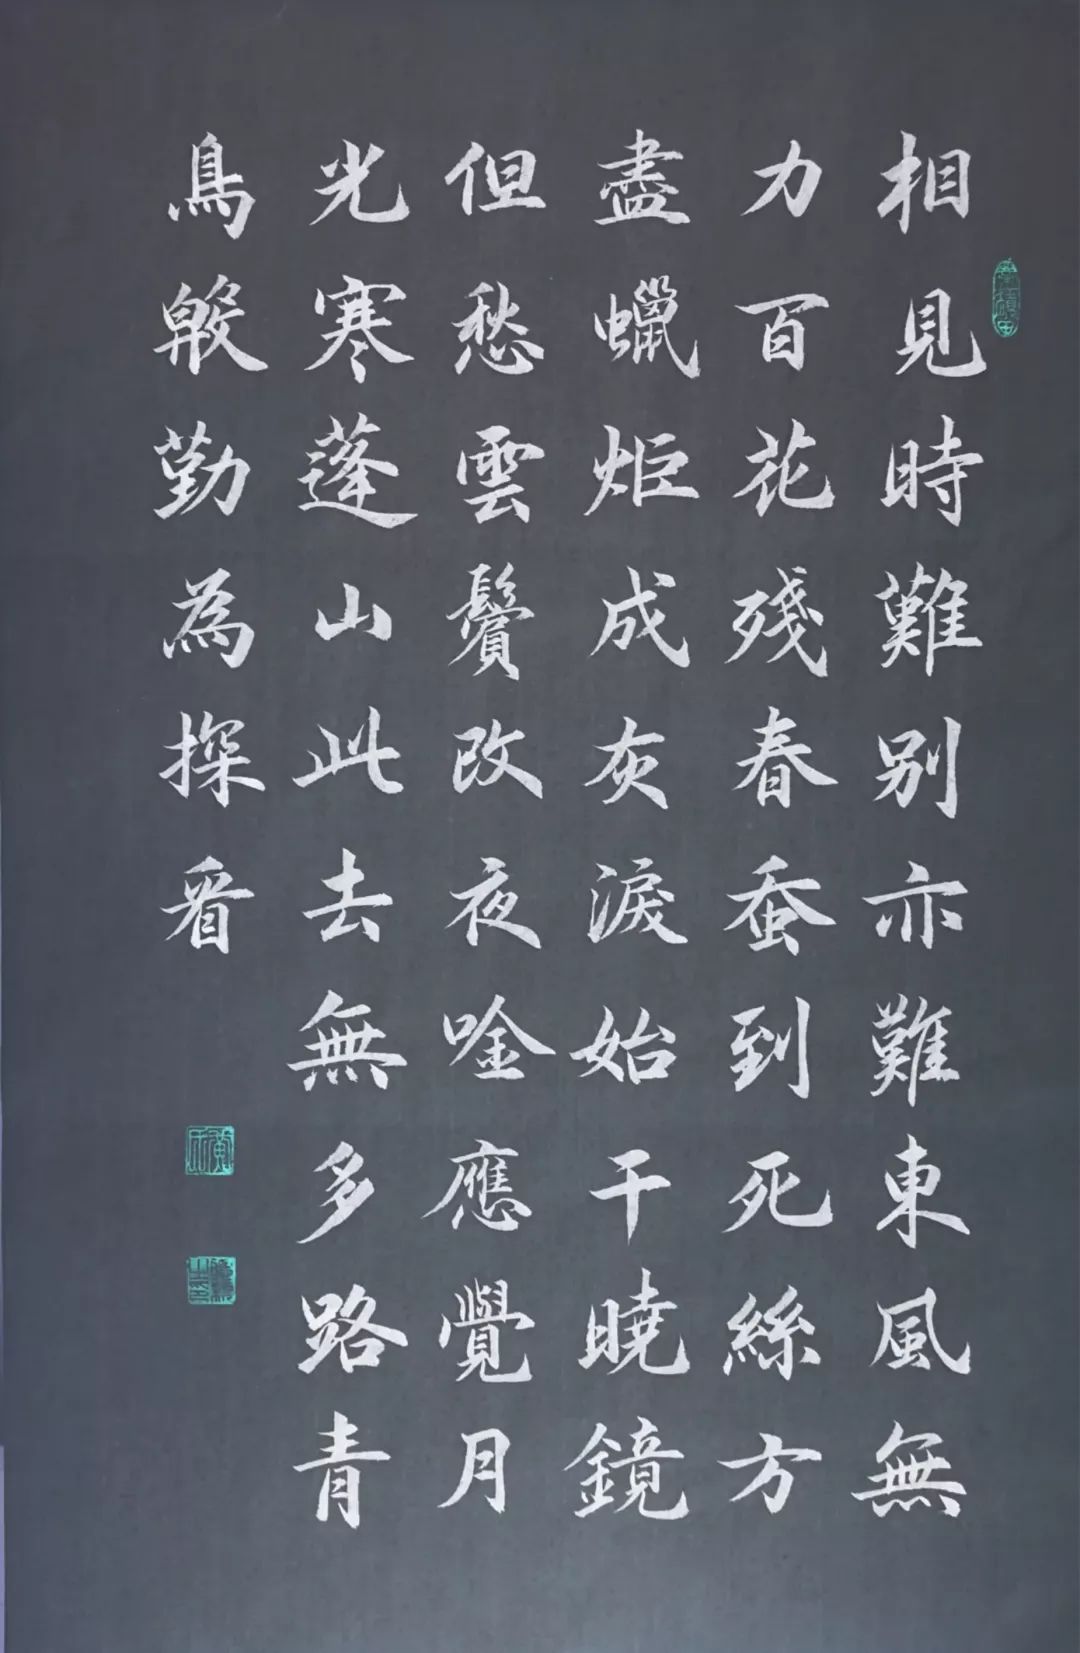 相見時難别亦難東風無
力百花残春蚕到死絲方
盡蠟炬成灰淚始干曉鏡
但愁雲鬢改夜唫應覺月
光寒蓬山此去無多路青
鳥慇勤為探看